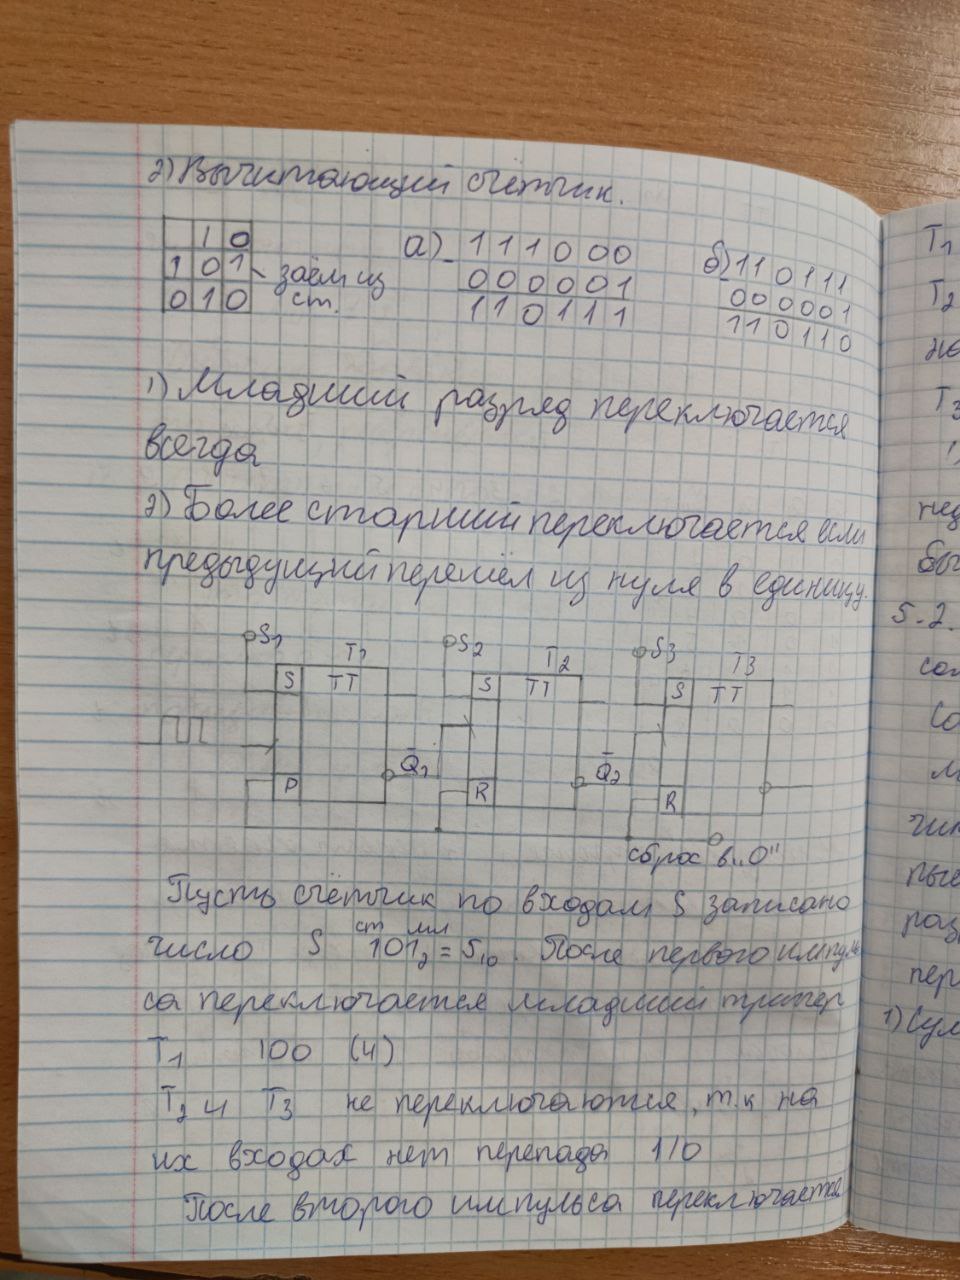 2) Вычитающий счётчик.
1 0
1 0 1 - заём из
0 1 0 ст.
а) - 111000
000001
110111
б) - 110111
000001
110110
1) Младший разряд переключается
всегда
2) Более старший переключается если
предыдущий перешёл из нуля в единицу.
S1 S2 S3
T1 T2 T3
S TT S TT S TT
Q̅1 Q̅2
R R R
сброс в „0"
Пусть счётчик по входам S записано
ст мл
число S 101₂ = 5₁₀. После первого импуль
са переключается младший тригер
T1 100 (4)
T2 и T3 не переключаются, т.к на
их входах нет перепада 1/0
После второго импульса переключается
T1
T2
T3
5.2.
1) Сум